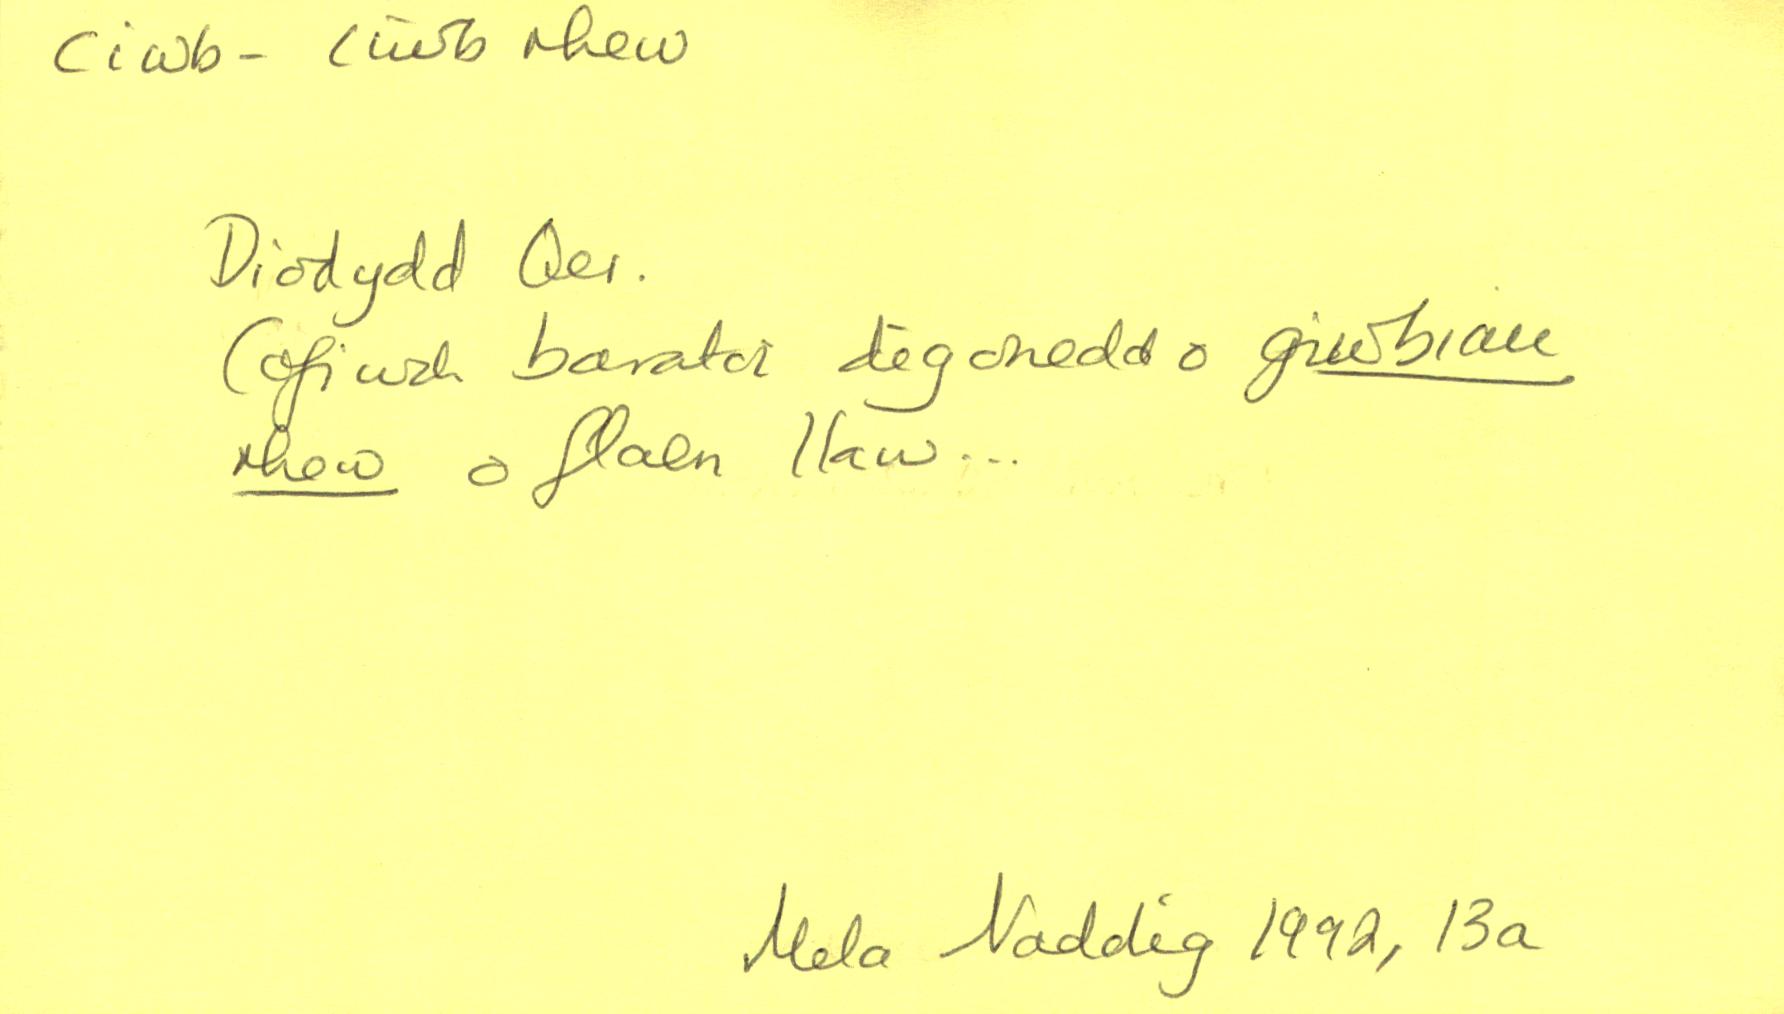 Ciwb - ciwb rhew
Diodydd Oer.
Cofiwch baratoi digonedd o giwbiau
rhew o flaen llaw...
Mela Naddig 1992, 13a